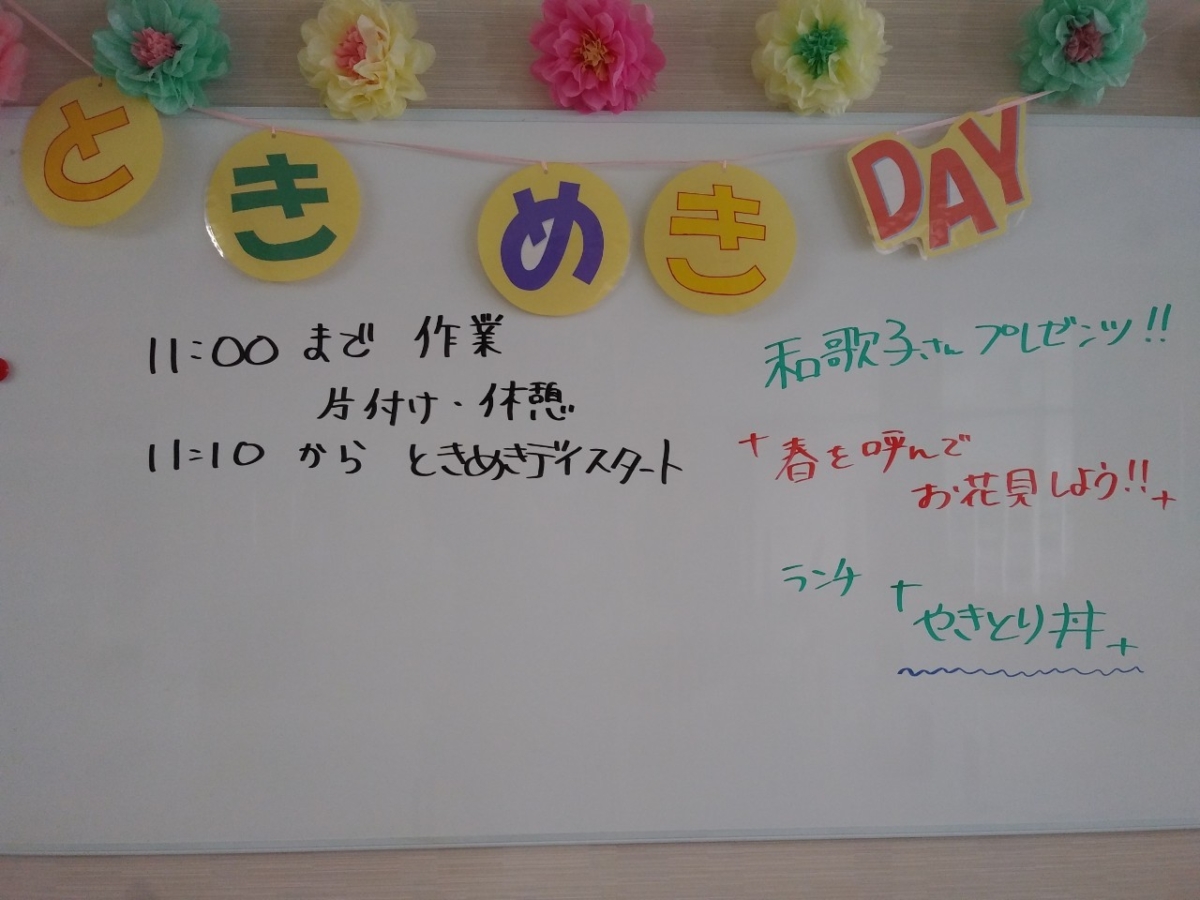 ときめきDAY
11:00 まで 作業
片付け・休憩
11:10 から ときめきディスタート
和歌子さん プレゼンツ!!
春を呼んで
お花見しよう!!
ランチ
やきとり丼